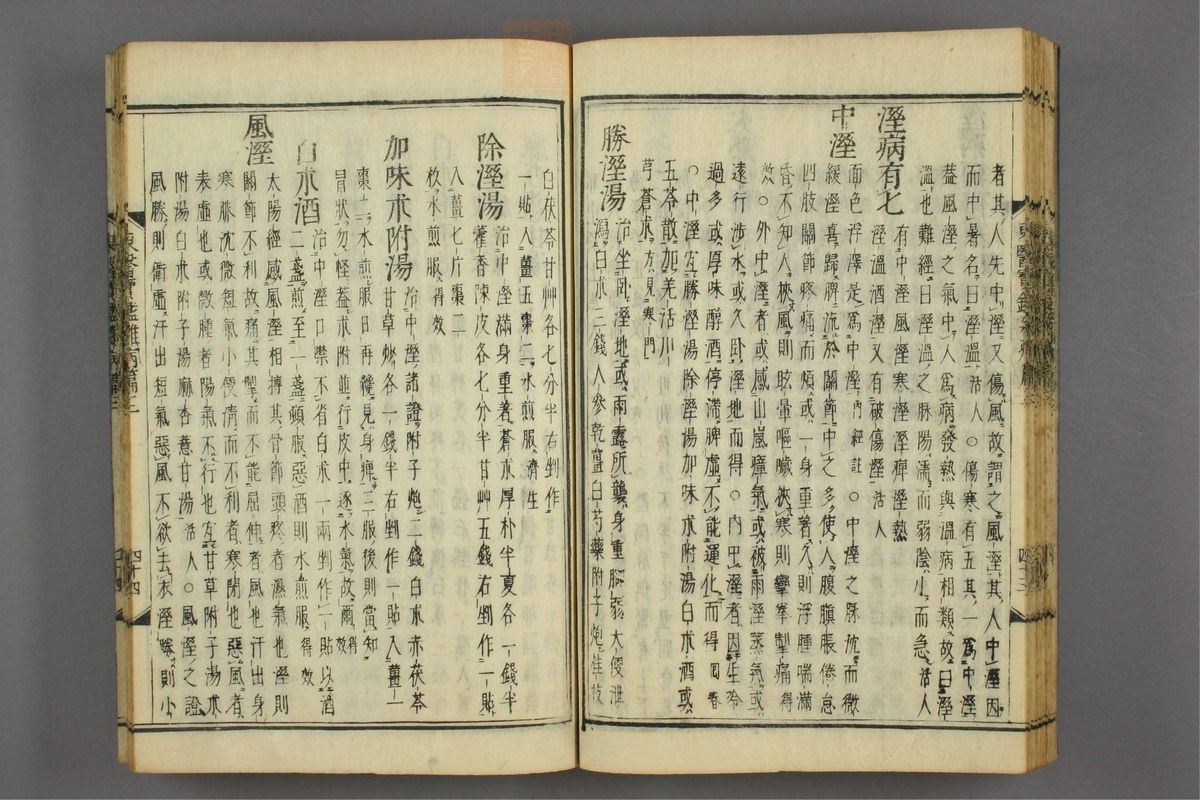 者其人先中溼又傷風故謂之風溼其人中溼因
而中暑名曰溼溫活人○傷寒有五其一爲中溼
蓋風溼之氣中人爲病發熱與溫病相類故曰溼
溫也難經曰溼溫之脉陽濡而弱陰小而急活人
溼病有七
有中溼風溼寒溼溼痺溼熱
溼溫酒溼又有破傷溼活人
中溼
面色浮澤是爲中溼內經註○中溼之脉沈而微
緩溼喜歸脾流於關節中之多使人腹䐜脹倦怠
四肢關節疼痛而煩或一身重著久則浮腫喘滿
昏不知人挾風則眩暈嘔噦挾寒則攣拳掣痛得
效○外中溼者或感山嵐瘴氣或被雨溼蒸氣或
遠行涉水或久卧溼地而得○內中溼者因生冷
過多或厚味醇酒停滯脾虛不能運化而得回春
○中溼宜勝溼湯除溼湯加味朮附湯白朮酒或
五苓散加羌活川
芎蒼朮方見寒門
勝溼湯
治坐卧溼地或雨露所襲身重脚弱大便泄
瀉白朮三錢人參乾薑白芍藥附子炮桂枝
白茯苓甘艸各七分半右剉作
一貼入薑五棗二水煎服濟生
除溼湯
治中溼滿身重著蒼朮厚朴半夏各一錢半
藿香陳皮各七分半甘艸五錢右剉作一貼
入薑七片棗二
枚水煎服得效
加味朮附湯
治中溼諸證附子炮二錢白朮赤茯苓
甘草炒各一錢半右剉作一貼入薑一
棗二水煎服日再纔見身痺三服後則當如
冒狀勿怪蓋朮附並行皮中逐水氣故爾得效
白朮酒
治中溼口噤不省白朮一兩剉作一貼以酒
二盞煎至一盞頓服惡酒則水煎服得效
風溼
太陽經感風溼相搏其骨節頭疼者濕氣也溼則
關節不利故痛其掣而不能屈伸者風也汗出身
寒脉沈微短氣小便淸而不利者寒閉也惡風者
表虛也或微腫者陽氣不行也宜甘草附子湯朮
附湯白朮附子湯麻杏薏甘湯活人○風溼之證
風勝則衛虛汗出短氣惡風不欲去衣溼勝則小